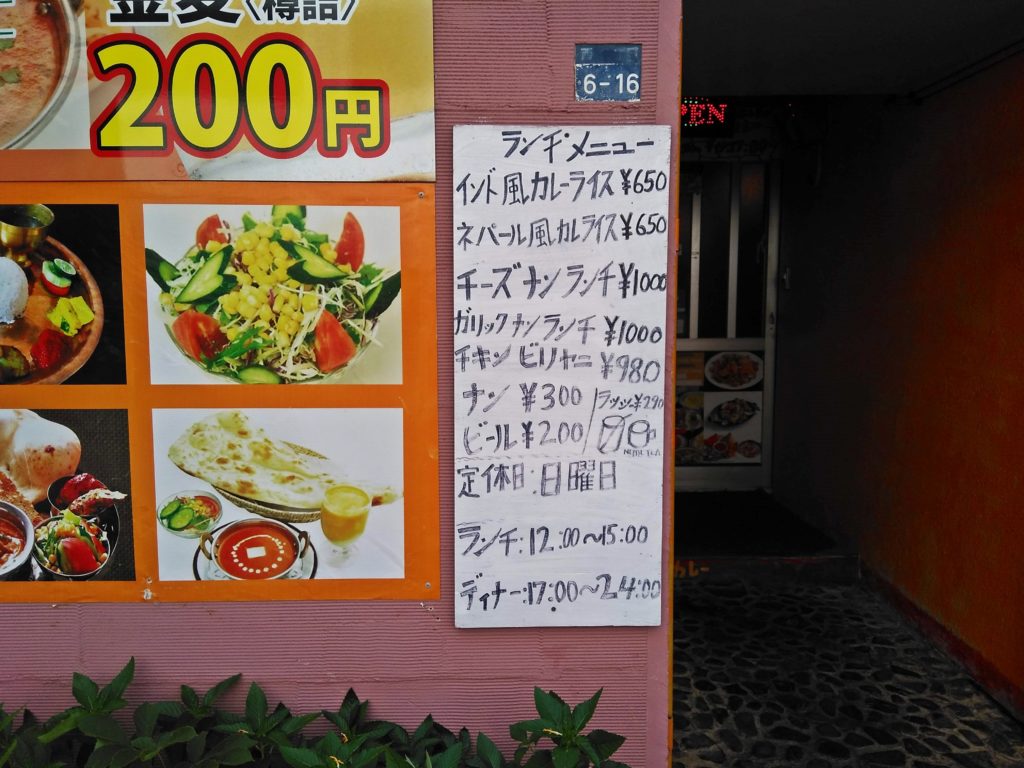 金麦〈樽詰〉
200円
6-16
PEN
ランチ・メニュー
インド風カレーライス ¥650
ネパール風カレライス ¥650
チーズナンランチ ¥1000
ガリックナンランチ ¥1000
チキンビリヤニ ¥980
ナン ¥300
ラッシー¥290
ビール¥200
定休日:日曜日
ランチ:12:00〜15:00
ディナー:17:00〜24:00
カレー